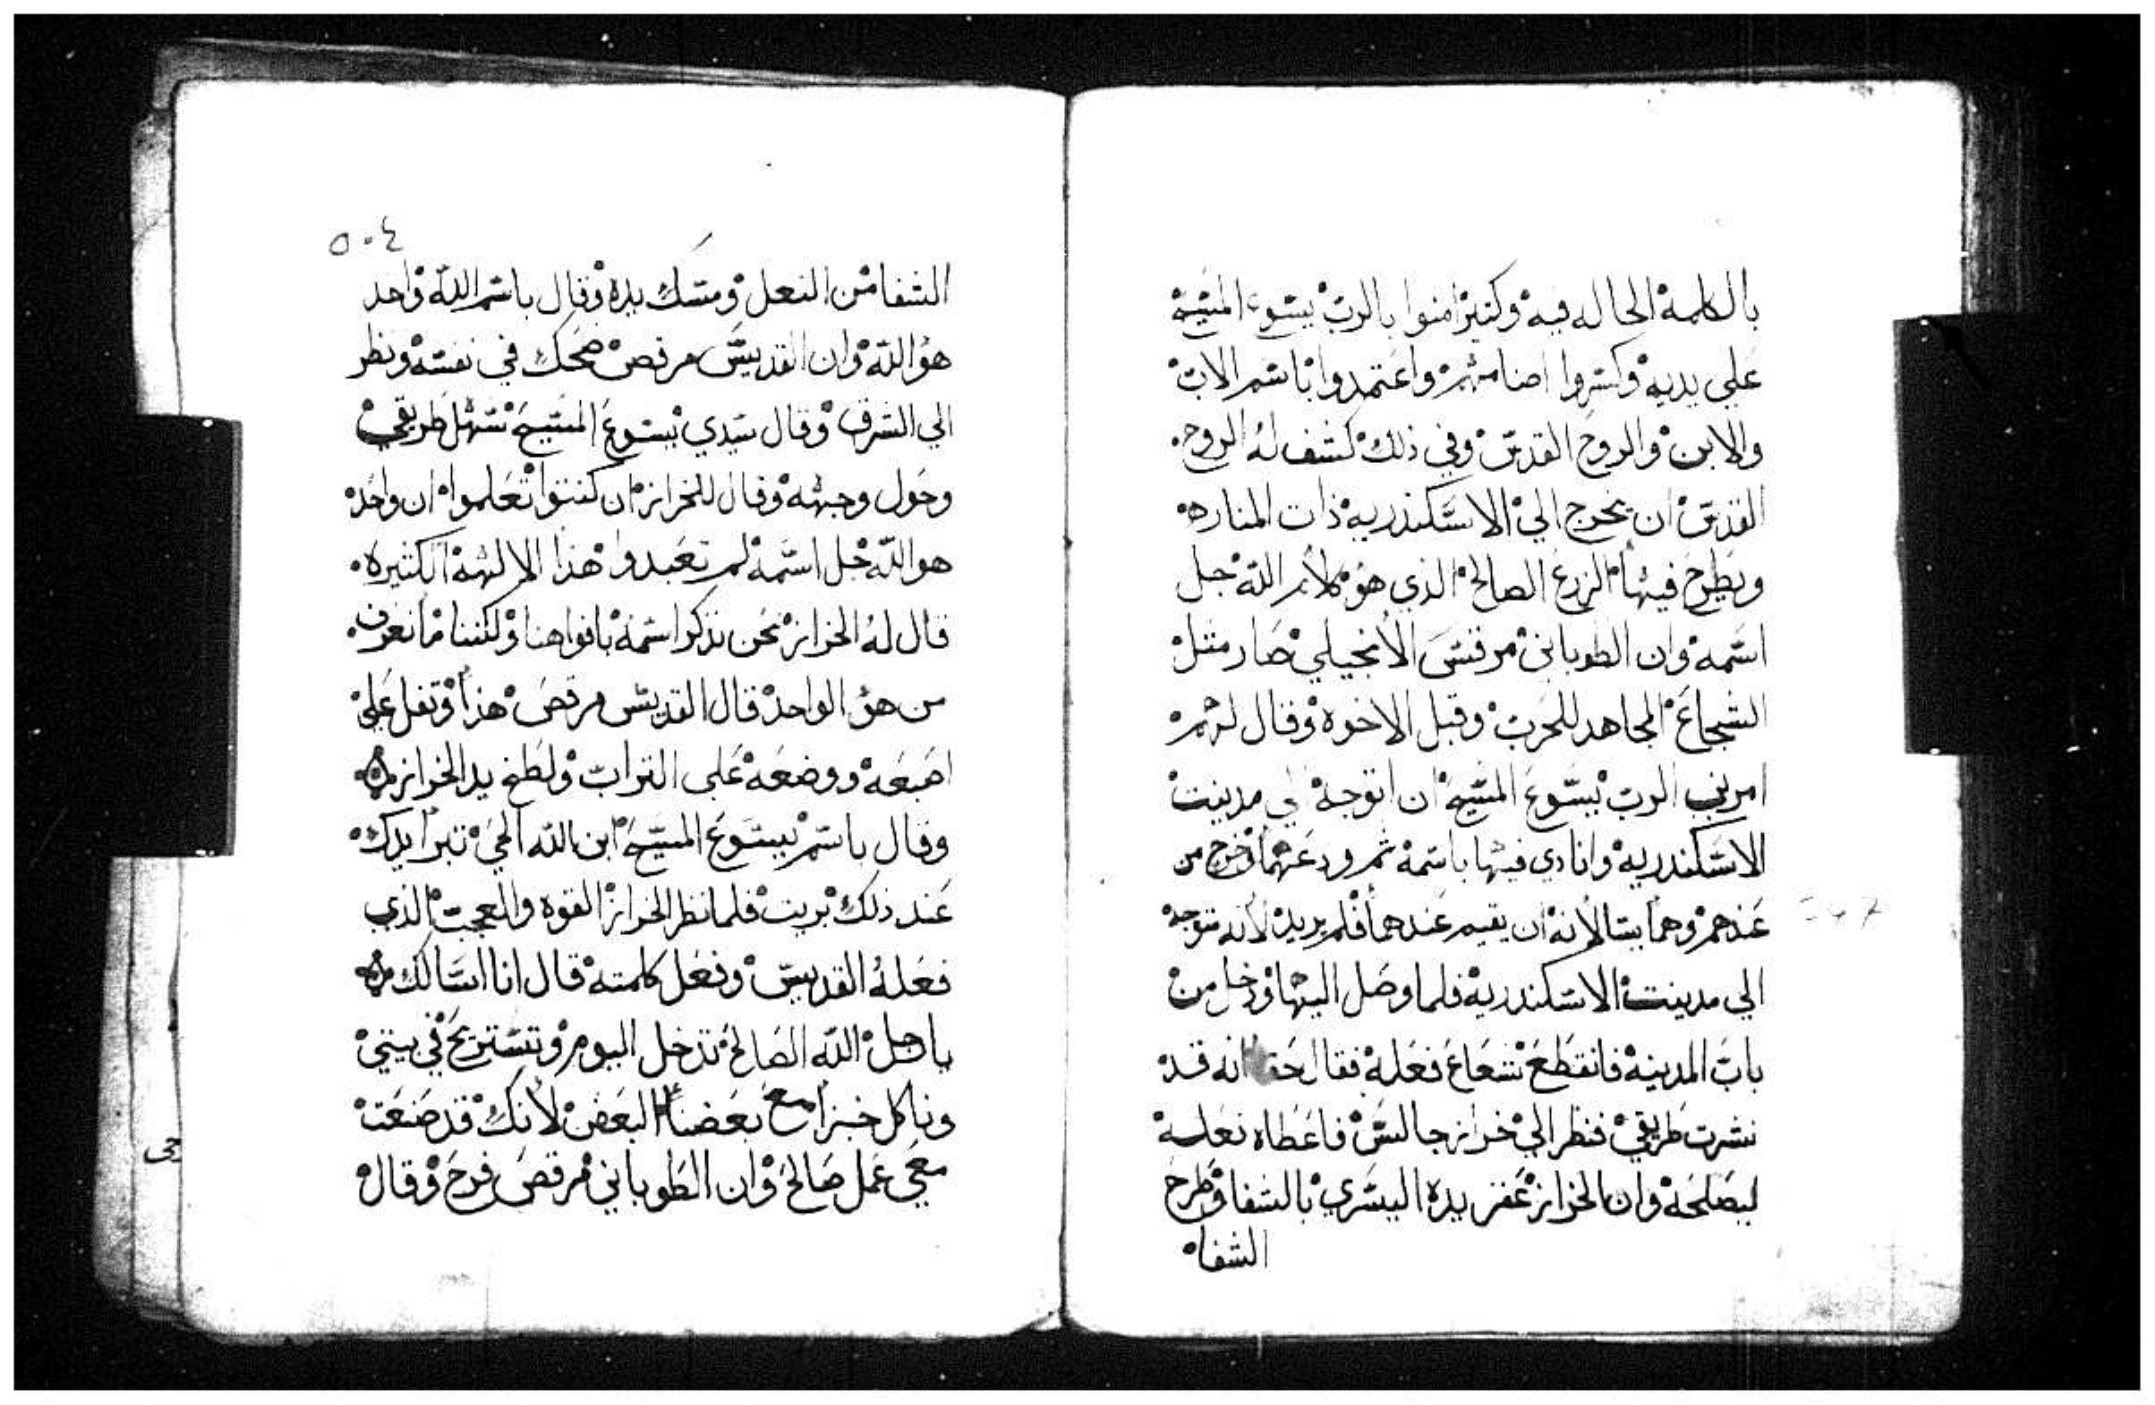 بالكلمة الحاله فيه وكتير امنوا بالرب يسوع المسيح
علي يديه وكسروا اصنامهم واعتمدوا باسم الاب
والابن والروح القدس وفي ذلك كشف له الروح
القدس ان يخرج الي الاسكندريه ذات المناره
ويطرح فيها الزرع الصالح الذي هو كلام الله جل
اسمه وان الطوباني مرقس الانجيلي صار متل
الشجاع المجاهد للحرب وقبل الاخوة وقال لهم
امرني الرب يسوع المسيح ان اتوجه الي مدينت
الاسكندريه وانادي فيها باسمه تم ودعهما وخرج من
عندهم وهما يسالانه ان يقيم عندهما فلم يريد لانه متوجه
الي مدينت الاسكندرية فلما وصل اليها ودخل من
باب المدينه فانقطع شعاع فعله فقال حقا انه قد
نشرت طريقي فنظر الي خراز جالس فاعطاه نعله
ليصلحه وان الخراز عفر يده اليسري بالشفا وطرح
الشفا
٥٠٤
الشفا من النعل ومسك يده وقال باسم الله واحد
هو الله وان القديس مرقص ضحك في نفسه ونظر
الي الشرق وقال سيدي يسوع المسيح سهل طريقي
وحول وجهه وقال للخراز ان كنتوا تعلموا ان واحد
هو الله جل اسمه لم تعبدوا هذا الالهه الكثيرة
قال له الخراز نحن نذكر اسمه بافواهنا ولكننا ما نعرف
من هو الواحد قال القديس مرقص هذا وتفل علي
اصبعه ووضعه علي التراب ولطخ يد الخراز
وقال باسم يسوع المسيح ابن الله الحي تبرا يدك
عند ذلك بريت فلما نظر الخراز القوه والعجب الذي
فعله القديس وفعل كلمته قال انا اسالك
يا رجل الله الصالح تدخل اليوم وتستريح في بيتي
وناكل خبزا مع بعضنا البعض لانك قد صنعت
معي عمل صالح وان الطوباني مرقص فرح وقال